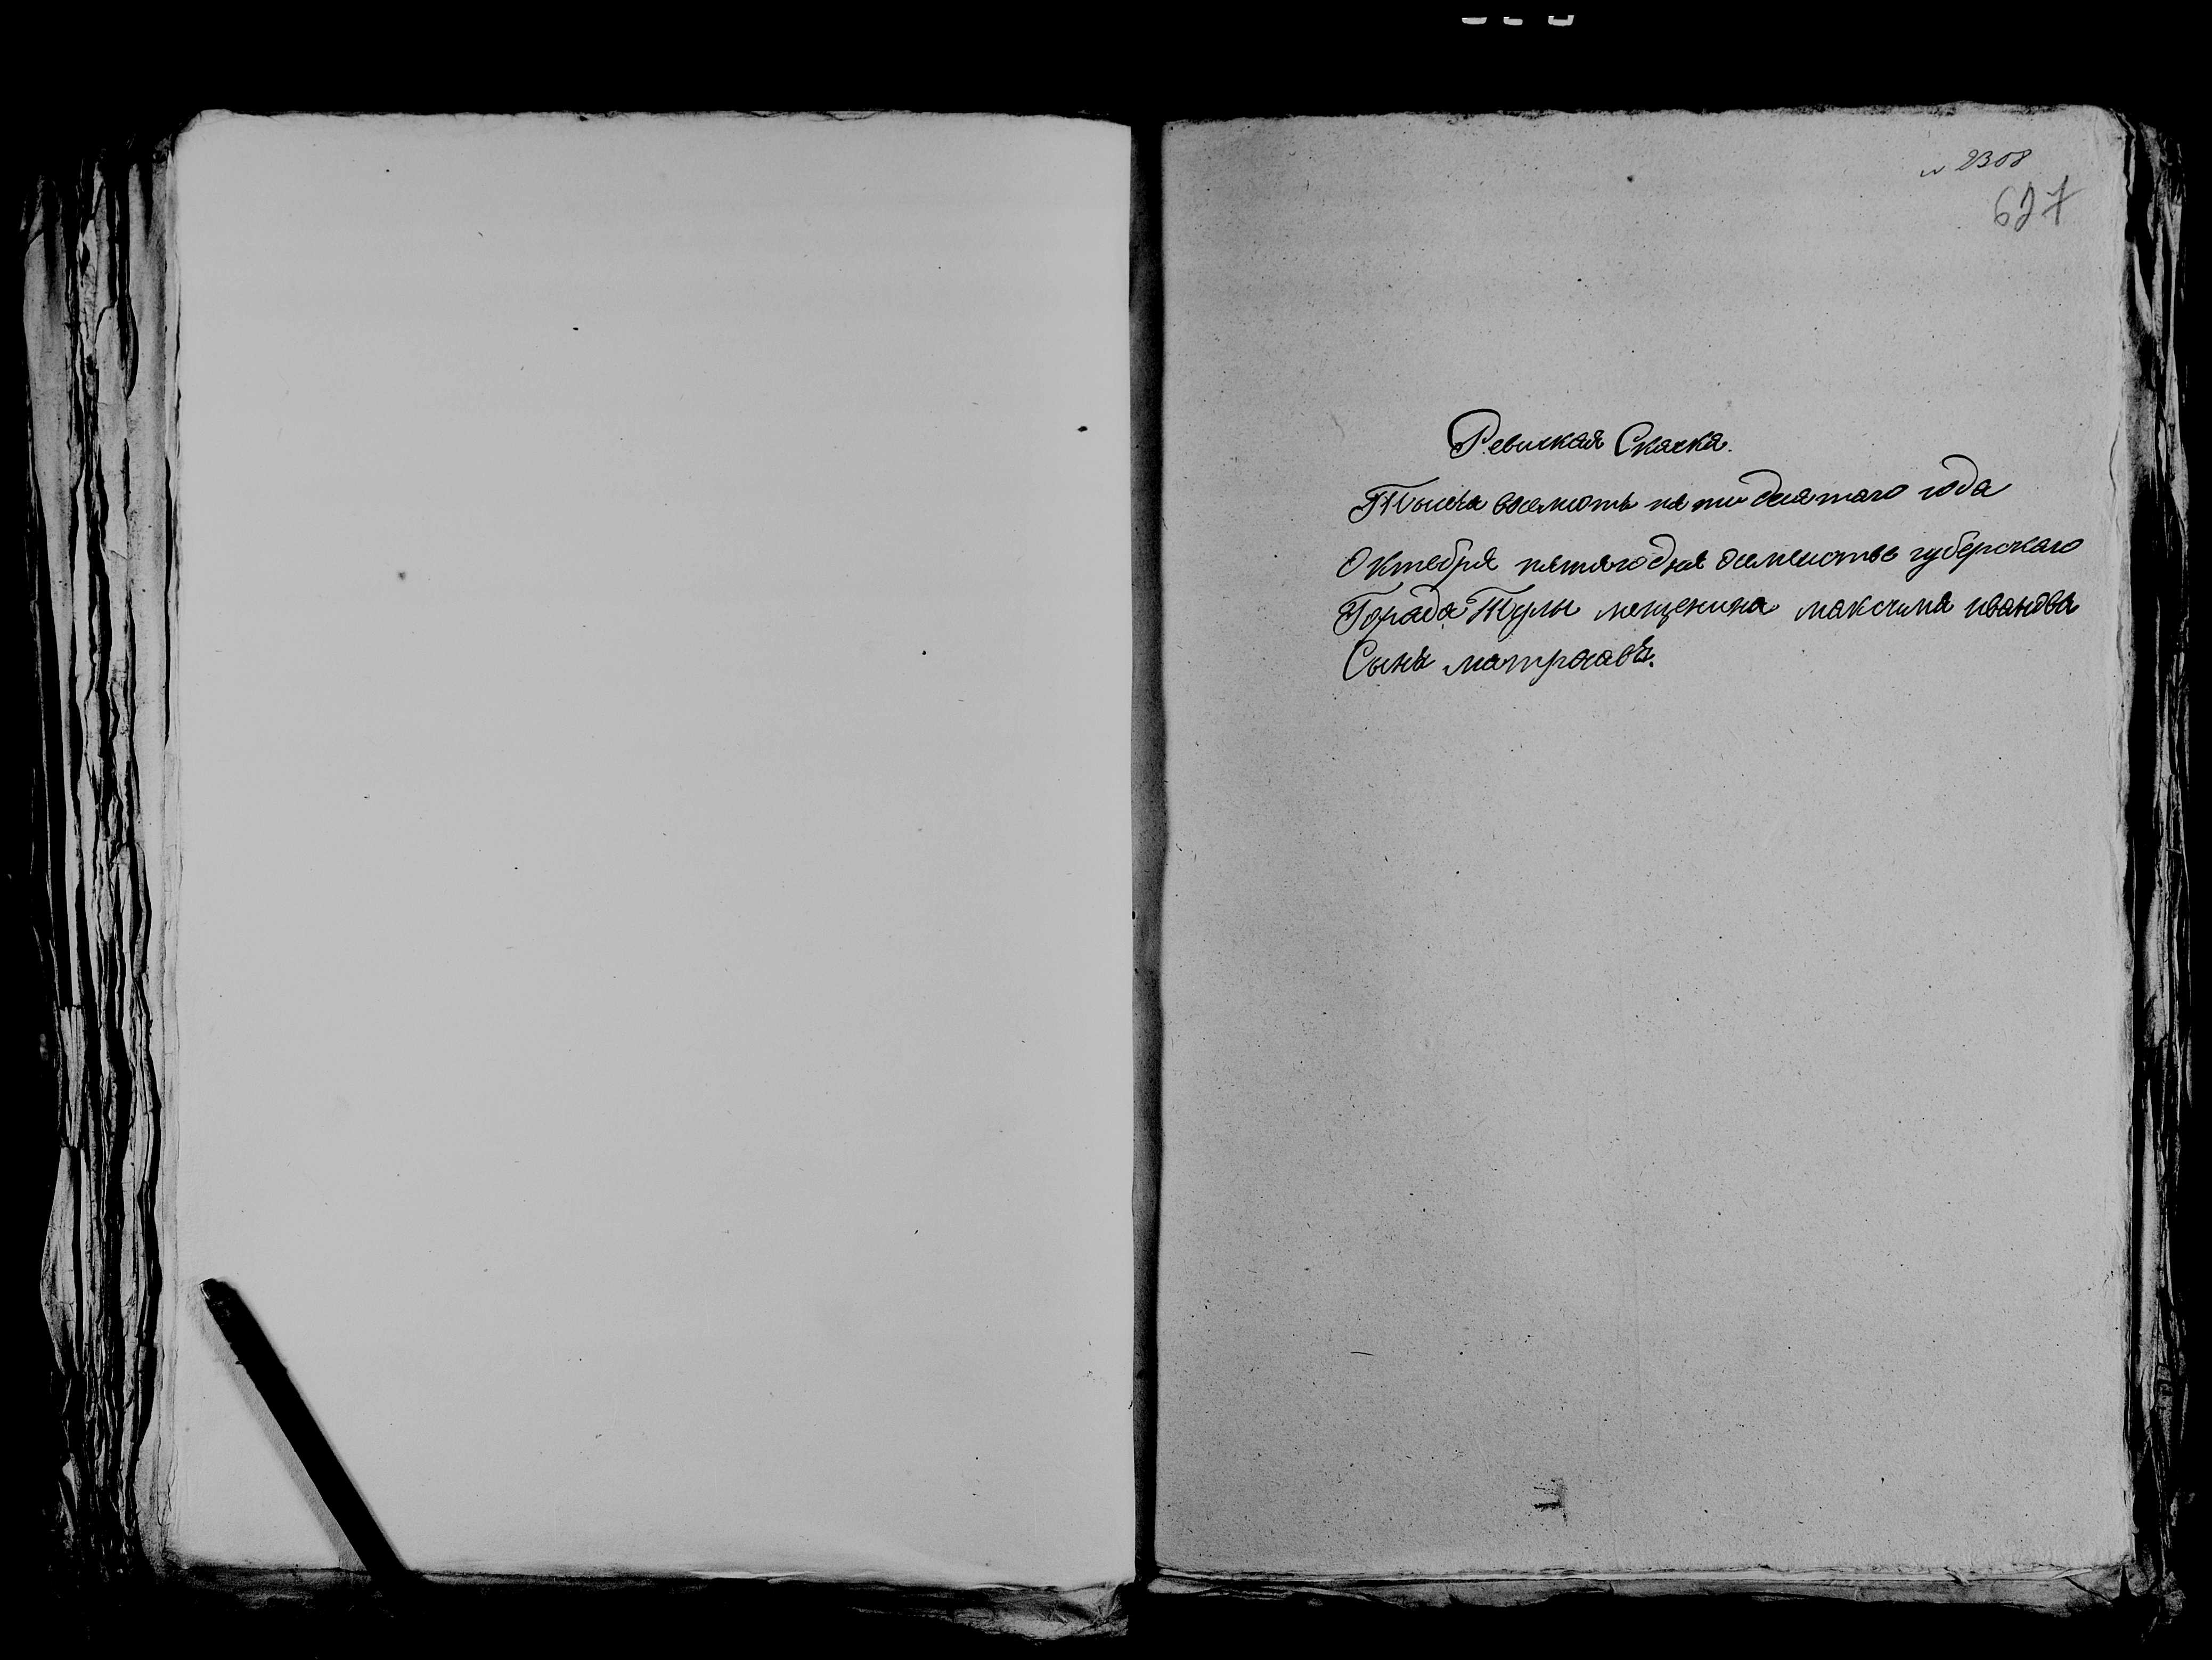 № 2308
627
Ревиская Скаска.
Тысеча восемьсотъ пятидесятаго года
Октебря пятагодня осемействе губерскаго
Горада Тулы мещенина максима иванова
Сына матрасавъ.